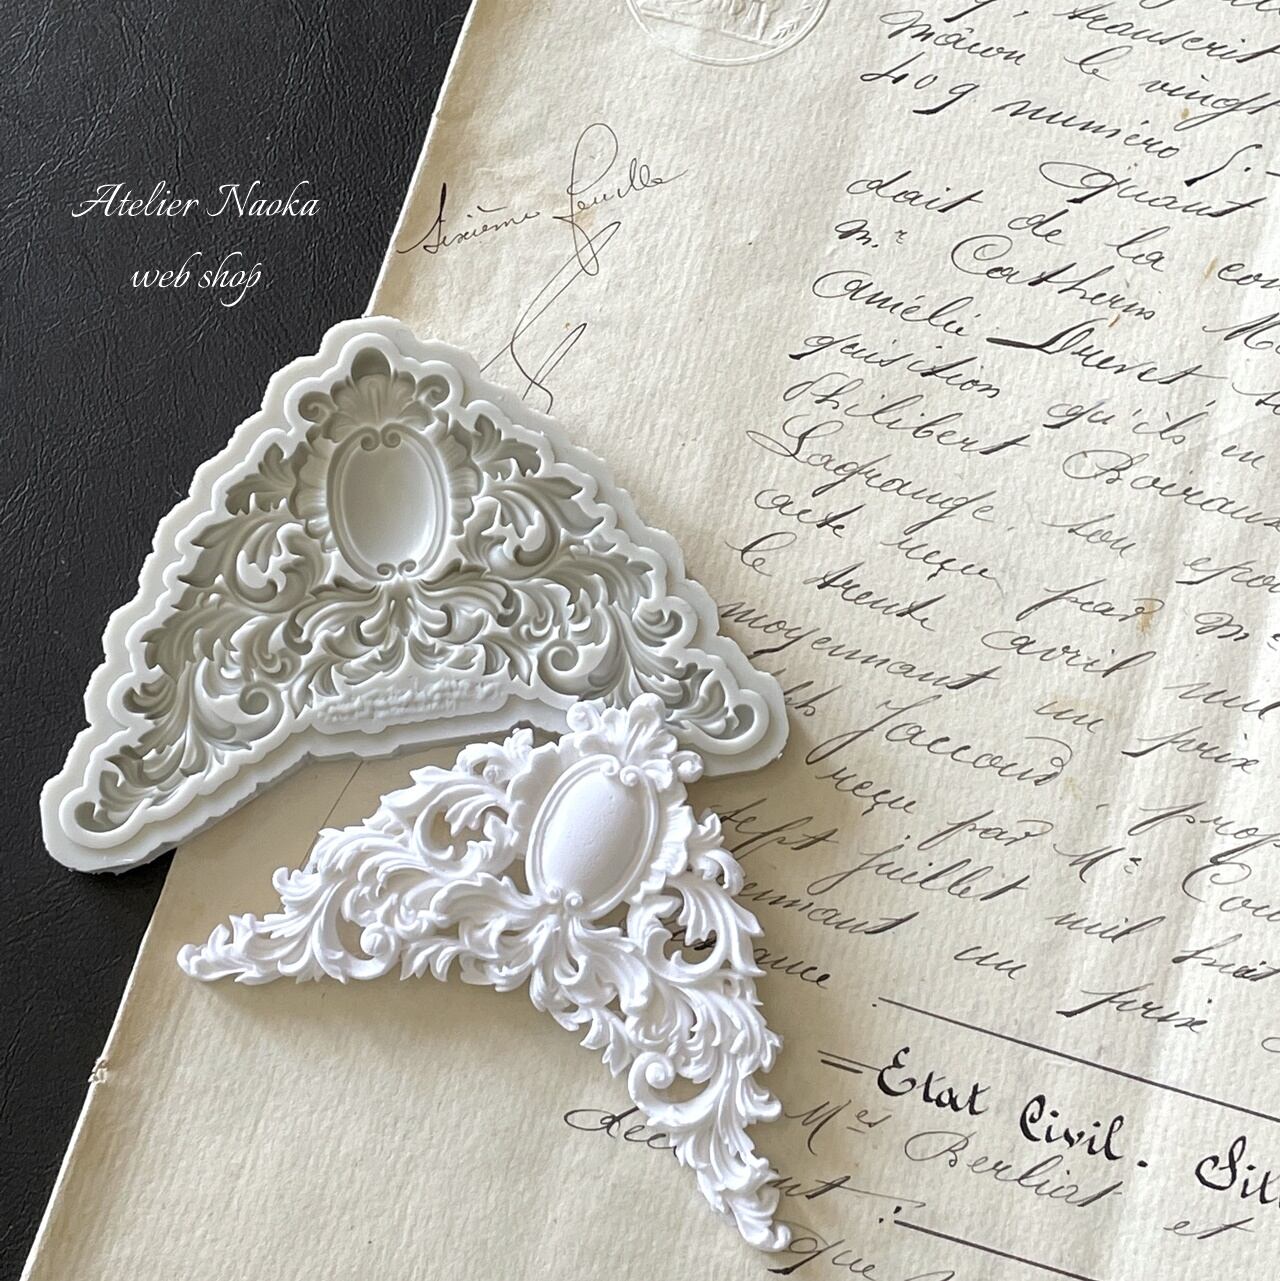 Atelier Naoka
web shop
sixième feuille
transcrit
mâcon le vingt
409 numéro 5.
Quant
dait de la
m.r Catherine
Amélie Drevet,
quisition qu'ils en
Philibert Boiraud
Lagrange, son
acte reçu par me
le trente avril mil
moyennant un prix
Jaccoud,
reçu par Me
sept juillet mil huit
un prix
Etat Civil.
Mes Berliat et
que